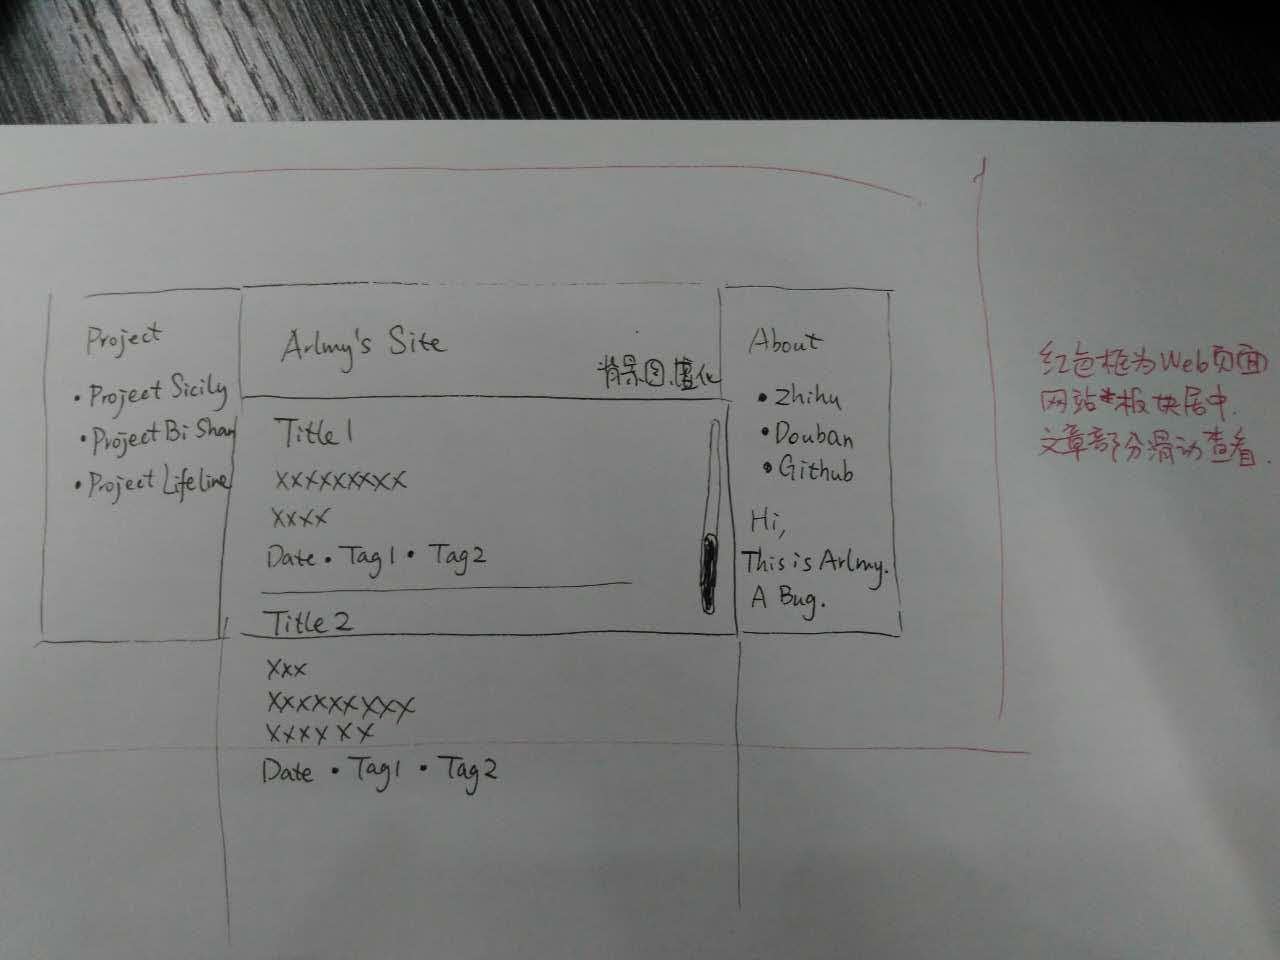 Project
• Project Sicily
• Project Bi Shan
• Project Lifeline
Arlmy's Site
背景图,虚化
Title 1
xxxxxxxxx
xxxx
Date • Tag1 • Tag2
Title 2
xxx
xxxxxxxxx
xxxxxx
Date • Tag1 • Tag2
About
• Zhihu
• Douban
• Github
Hi,
This is Arlmy.
A Bug.
红色框为Web页面
网站*板块居中.
文章部分滑动查看.